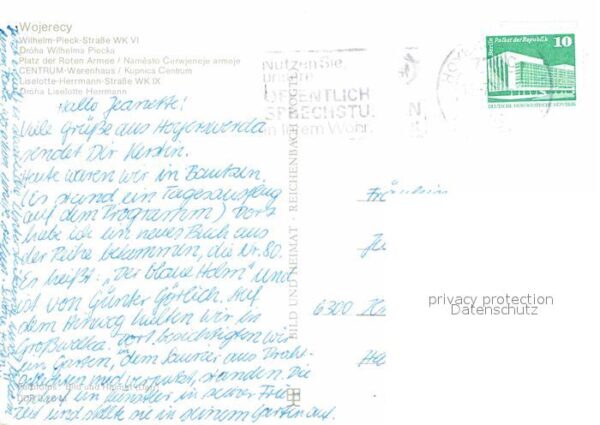 Wojerecy
Wilhelm-Pieck-Straße WK VI
Dróha Wilhelma Piecka
Platz der Roten Armee / Naměsto Čerwjeneje armeje
CENTRUM-Warenhaus / Kupnica Centrum
Liselotte-Herrmann-Straße WK IX
Dróha Liselotte Herrmann
Hallo Jeanette!
Viele Grüße aus Hoyerswerda
sendet Dir Kerstin.
Heute waren wir in Bautzen.
(es stand ein Tagesausflug
auf dem Programm) Dort
habe ich ein neues Buch aus
der Reihe bekommen, die Nr. 80.
Es heißt: „Der blaue Helm" und
ist von Günter Görlich. Auf
dem Hinweg hielten wir in
Großwelka. Dort besichtigten wir
ein Garten, dem Saurier aus Draht-
geflochten und verputzt, standen. Die
ein Künstler in seiner Frei-
zeit und stellte sie in seinem Garten auf.
BILD UND HEIMAT · REICHENBACH (VOGTL)
Nutzen Sie
unsere
ÖFFENTLICH
SPRECHSTU
in Ihrem Wohn
Berlin Palast der Republik
10
DEUTSCHE DEMOKRATISCHE REPUBLIK
Frä
6300
privacy protection
Datenschutz